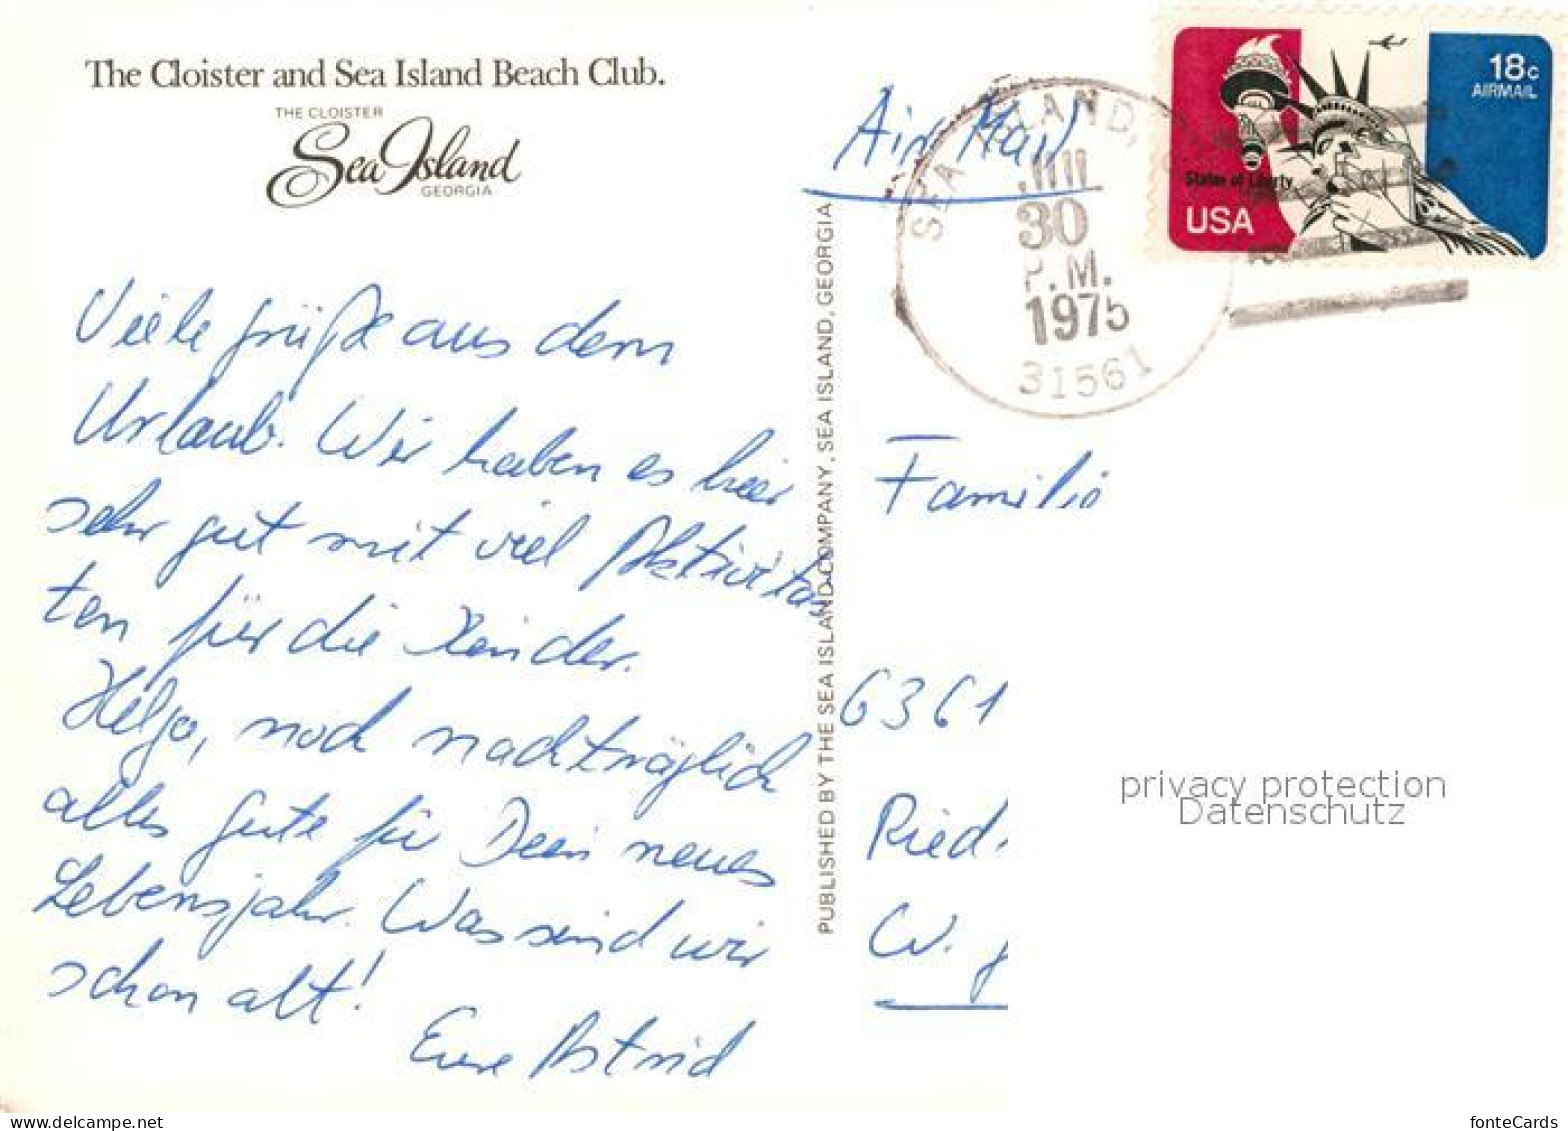 The Cloister and Sea Island Beach Club.
THE CLOISTER
Sea Island
GEORGIA
Viele Grüße aus dem
Urlaub. Wir haben es hier
sehr gut mit viel Aktivitä
ten für die Kinder.
Helga, noch nachträglich
alles Gute für Dein neues
Lebensjahr. Was sind wir
schon alt!
Eure Astrid
PUBLISHED BY THE SEA ISLAND COMPANY, SEA ISLAND, GEORGIA
Air Mail
SEA ISLAND,
30
P.M.
1975
31561
18c
AIRMAIL
Statue of Liberty
USA
Familie
6361
Ried
W. g
privacy protection
Datenschutz
fonteCards